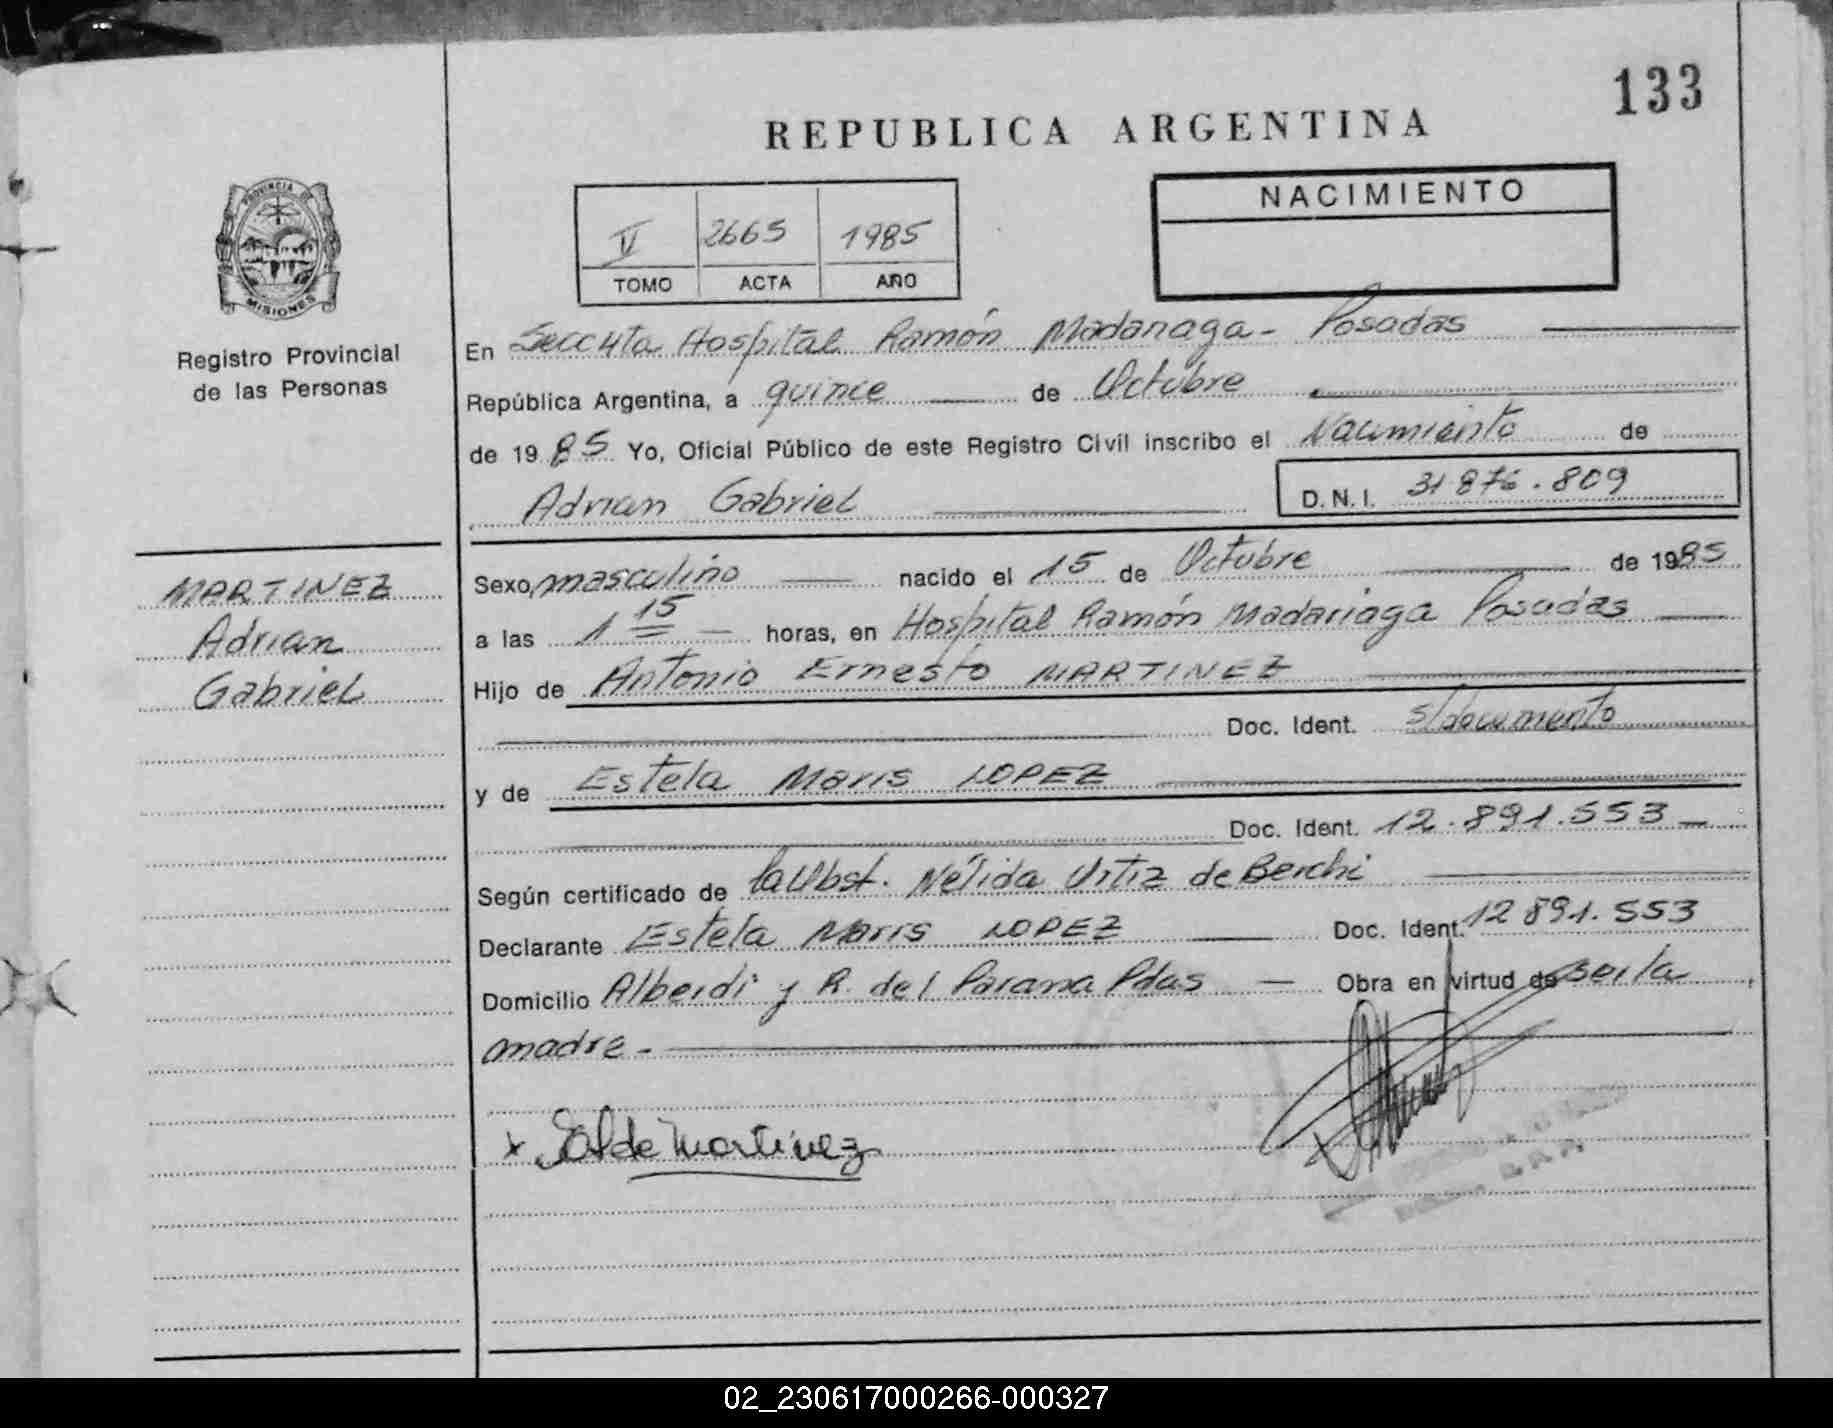 133
REPUBLICA ARGENTINA
PROVINCIA DE
MISIONES
Registro Provincial
de las Personas
NACIMIENTO
V 2665 1985
TOMO ACTA AÑO
En Secc 4ta Hospital Ramón Madariaga - Posadas
República Argentina, a quince de Octubre
de 1985 Yo, Oficial Público de este Registro Civil inscribo el Nacimiento de
Adrian Gabriel D.N.I. 31 876.809
MARTINEZ
Adrian
Gabriel
Sexo masculino nacido el 15 de Octubre de 1985
a las 1 15 horas, en Hospital Ramón Madariaga Posadas
Hijo de Antonio Ernesto MARTINEZ
Doc. Ident. s/documento
y de Estela Maris LOPEZ
Doc. Ident. 12.891.553
Según certificado de la Obst. Nélida Ortiz de Berchi
Declarante Estela Maris LOPEZ Doc. Ident. 12 891.553
Domicilio Alberdi y R. del Parana Pdas Obra en virtud de ser la
madre.
x de Martinez
02_230617000266-000327